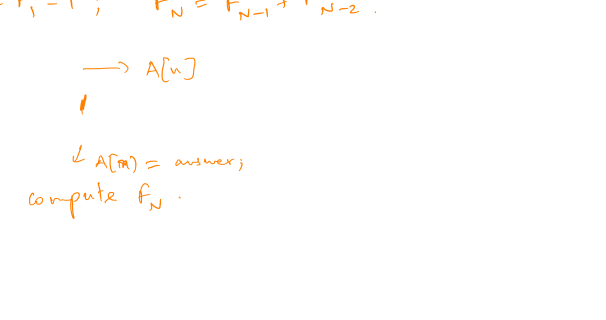 F₁ = 1 ; F_N = F_{N-1} + F_{N-2} .
→ A[n]
↓ A[n] = answer;
compute F_N .